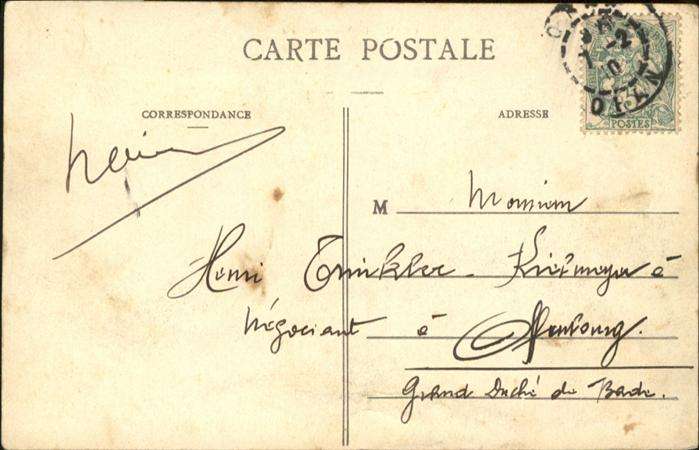 CARTE POSTALE
CORRESPONDANCE
ADRESSE
POSTES
ORAN
M Monsieur
Henri Trinkler - Kritmeyer à
Négociant à Offenbourg.
Grand Duché de Bade.